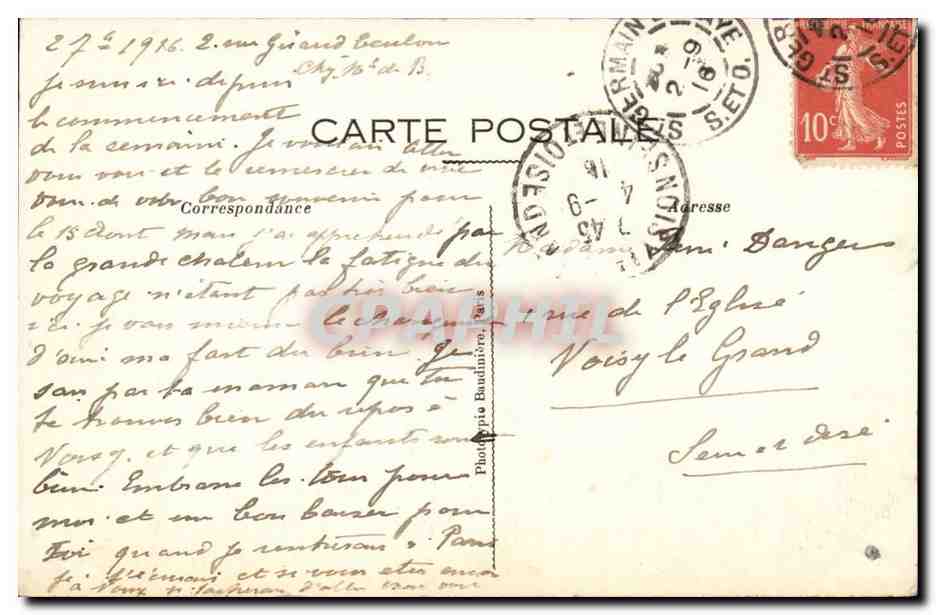 27 1916. 2 rue Girand Toulon
Je suis ici depuis
le commencement
de la semaine. Je voulais aller
vous voir et te remercier de
votre bon souvenir pour
CARTE POSTALE
Correspondance
Adresse
le 15 Août mais j'ai appréhendé par
la grande chaleur la fatigue du
voyage n'étant pas très bien
ici je vais mieux le changement
d'air m'a fait du bien. Je
sais par ta maman que tu
te trouves bien du repos à
Voisy et que les enfants sont
bien. Embrasse les tous pour
moi et un bon baiser pour
toi quand je rentrerai à Paris
je t'écrirai et si vous êtes encore
Madame Danger
rue de l'Eglise
Voisy le Grand
Seine et Oise
Phototypie Baudinière, Paris
CPAPHIL
ST GERMAIN EN LAYE
S. ET O.
2 -9
16
SEINE-ET-OISE
7 45
4 -9
16
10c
POSTES